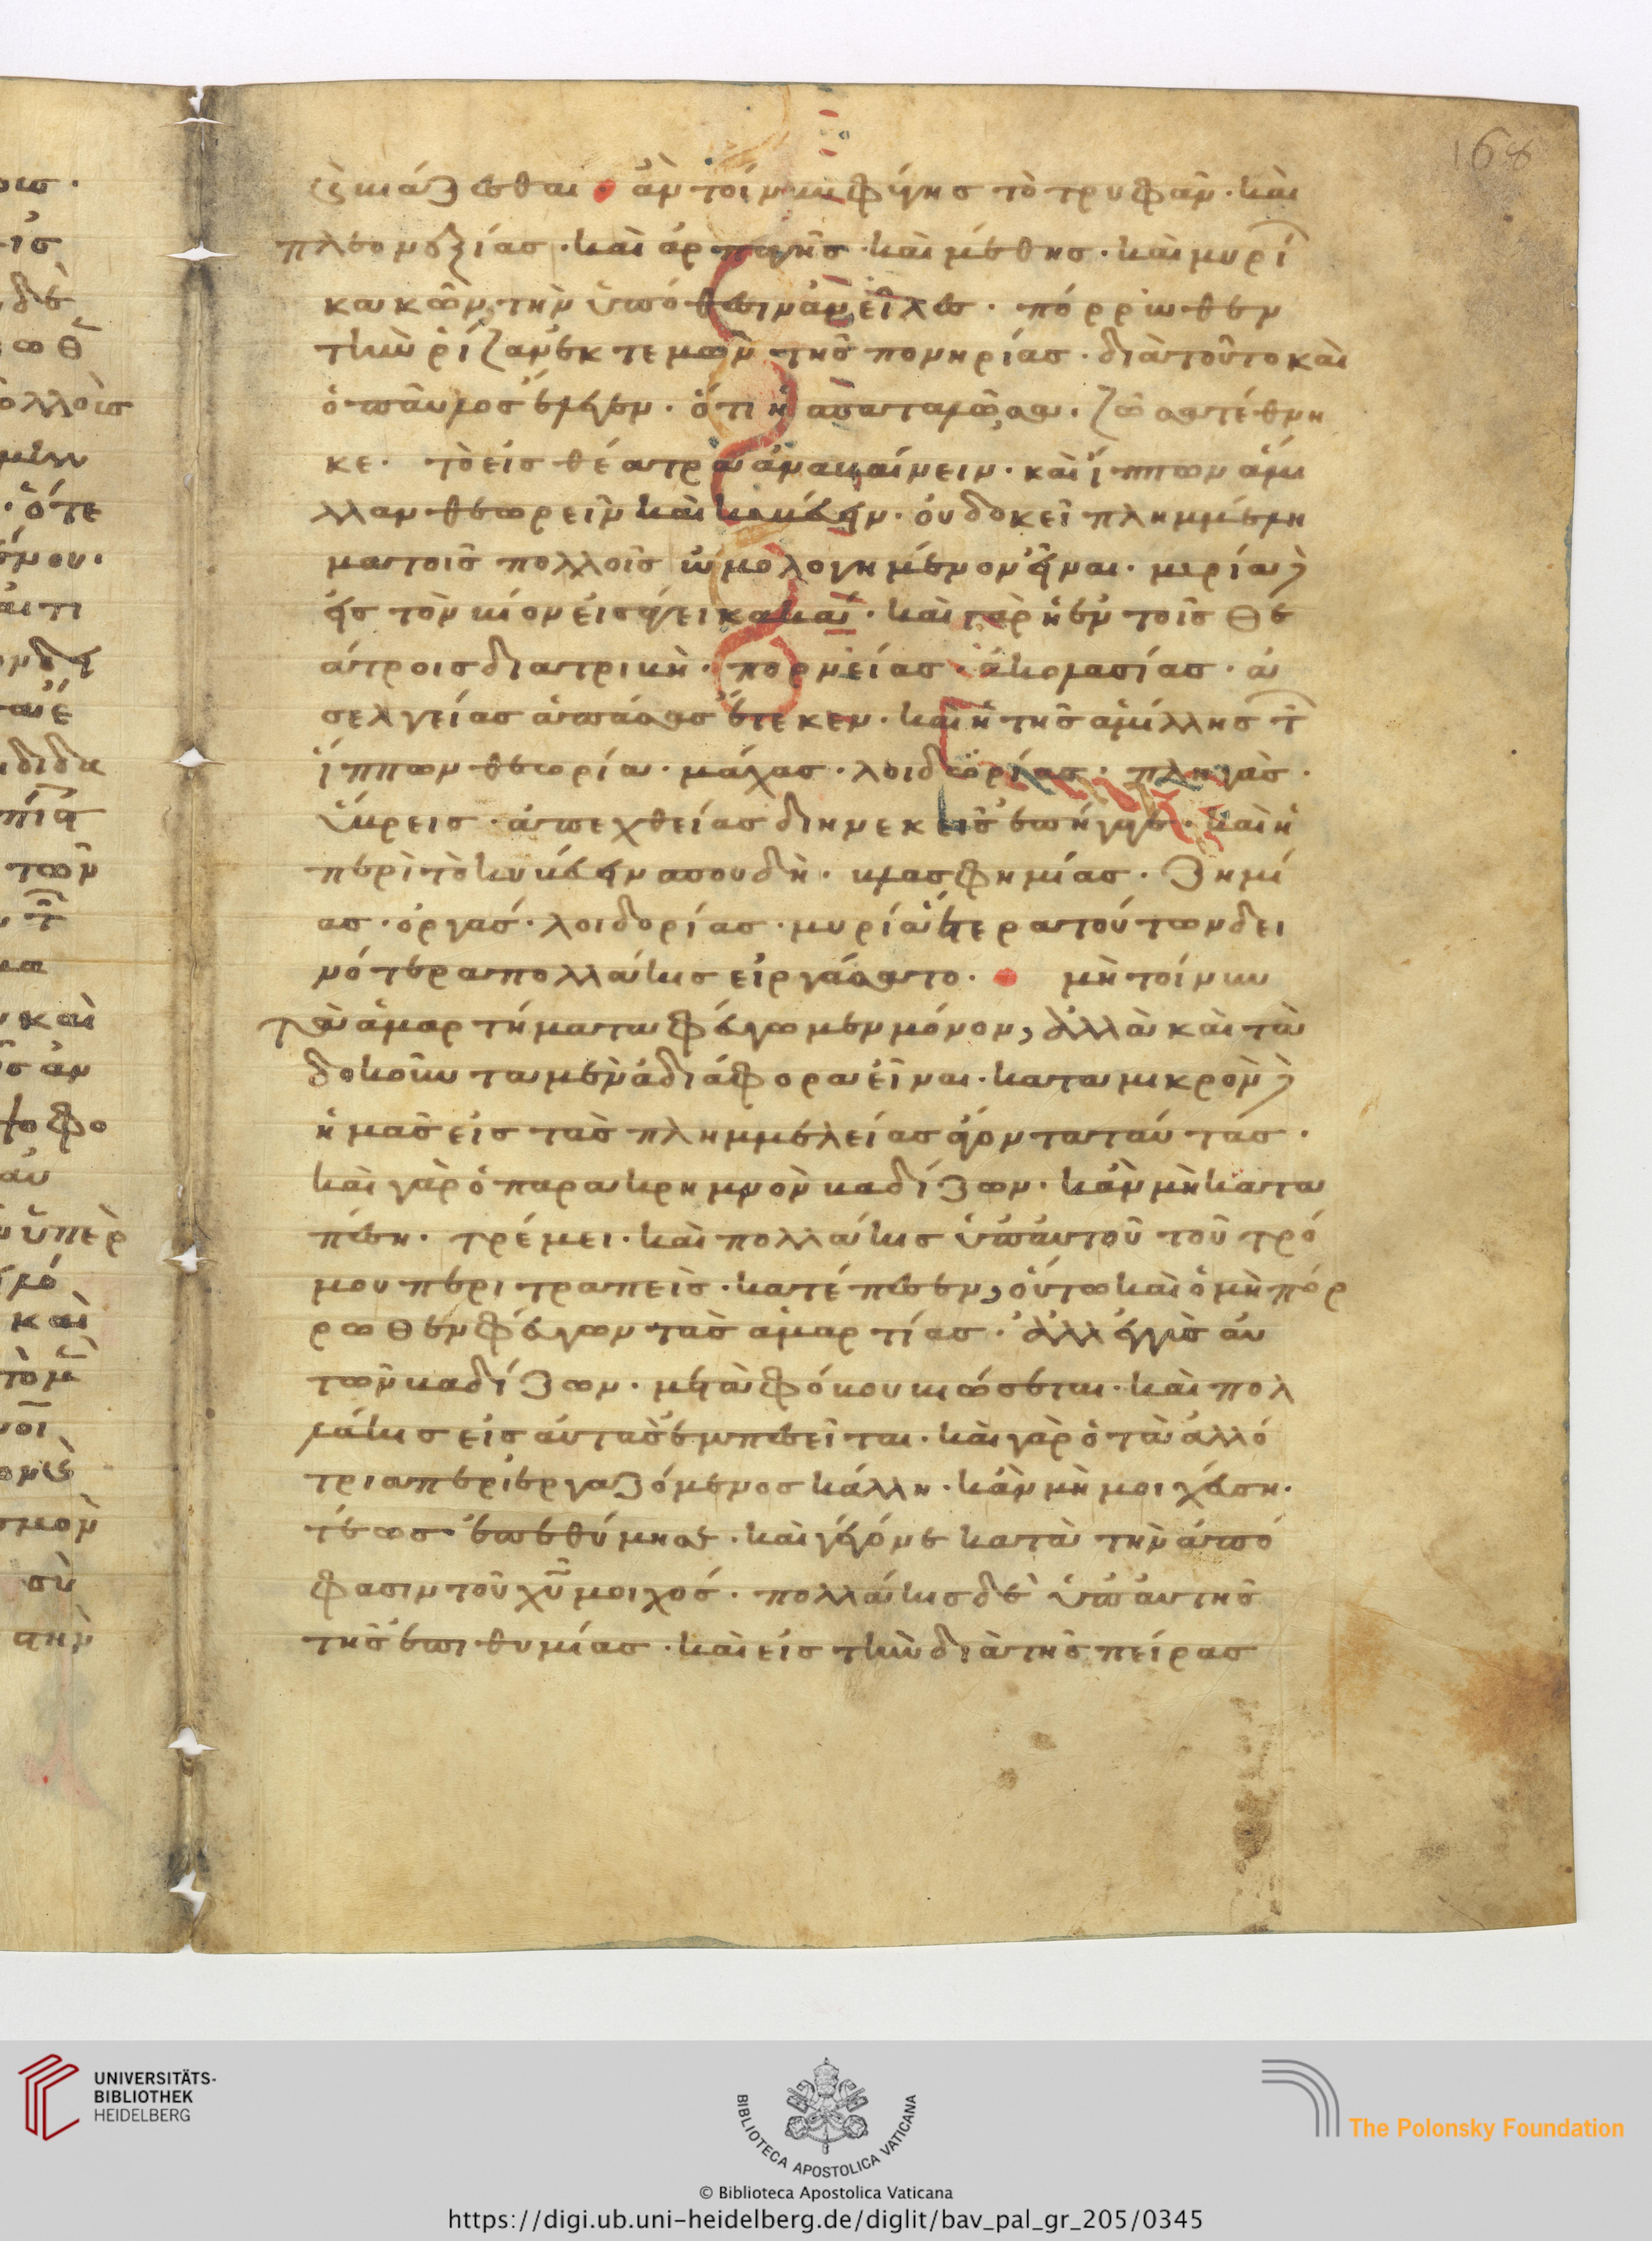 βιάζεσθαι · ἂν τοίνυν φύγης τὸ τρυφᾶν · καὶ
πλεονεξίας · καὶ ἁρπαγῆς · καὶ μέθης · καὶ μυρί
κακῶν τὴν ὑπόθεσιν ἀνεῖλες · πόρρωθεν
τὴν ῥίζαν ἐκτεμὼν τῆς πονηρίας · διὰ τοῦτο καὶ
ὁ παῦλος ἔλεγεν · ὅτι ἡ σπαταλῶσα · ζῶσα τέθνη
κε · τὸ εἰς θέατρα ἀναβαίνειν · καὶ ἵππων ἅμι
λλαν θεωρεῖν καὶ κυβεύειν · οὐ δοκεῖ πλημμέλη
μα τοῖς πολλοῖς ὡμολογημένον εἶναι · μυρία
εἰς τὸν βίον εἰσάγει κακά · καὶ γὰρ ἡ ἐν τοῖς θε
άτροις διατριβὴ · πορνείας · ἀκολασίας · ἀ
σελγείας ἁπάσας ἔτεκεν · καὶ ἡ τῆς ἁμίλλης τ͂
ἵππων θεωρία · μάχας · λοιδορίας · πληγὰς ·
ὕβρεις · ἀπεχθείας διηνεκεῖς ἐπήγαγε · καὶ ἡ
περὶ τὸ κυβεύειν σπουδὴ · βλασφημίας · ζημί
ας · ὀργάς · λοιδορίας · μυρία ἕτερα τούτων δει
νότερα πολλάκις εἰργάσατο · μὴ τοίνυν
τὰ ἁμαρτήματα φεύγωμεν μόνον, ἀλλὰ καὶ τὰ
δοκοῦντα μὲν ἀδιάφορα εἶναι · κατὰ μικρὸν
ἡμᾶς εἰς τὰς πλημμελείας ἄγοντα ταύτας ·
καὶ γὰρ ὁ παρὰ κρημνὸν βαδίζων · κἂν μὴ κατα
πέση · τρέμει · καὶ πολλάκις ὑπ' αὐτοῦ τοῦ τρό
μου περιτραπεὶς · κατέπεσεν, οὕτω καὶ ὁ μὴ πόρ
ρωθεν φεύγων τὰς ἁμαρτίας · ἀλλ' ἐγγὺς αὐ
τῶν βαδίζων · μετὰ φόβου βιώσεται · καὶ πολ
λάκις εἰς αὐτὰς ἐμπεσεῖται · καὶ γὰρ ὁ τὰ ἀλλό
τρια περιεργαζόμενος κάλλη · κἂν μὴ μοιχεύση ·
τέως ἐπεθύμησε · καὶ γέγονε κατὰ τὴν ἀπό
φασιν τοῦ χ͞υ μοιχός · πολλάκις δὲ ὑπ' αὐτῆς
τῆς ἐπιθυμίας · καὶ εἰς τὴν διὰ τῆς πείρας
168
UNIVERSITÄTS-
BIBLIOTHEK
HEIDELBERG
BIBLIOTECA APOSTOLICA VATICANA
The Polonsky Foundation
© Biblioteca Apostolica Vaticana
https://digi.ub.uni-heidelberg.de/diglit/bav_pal_gr_205/0345